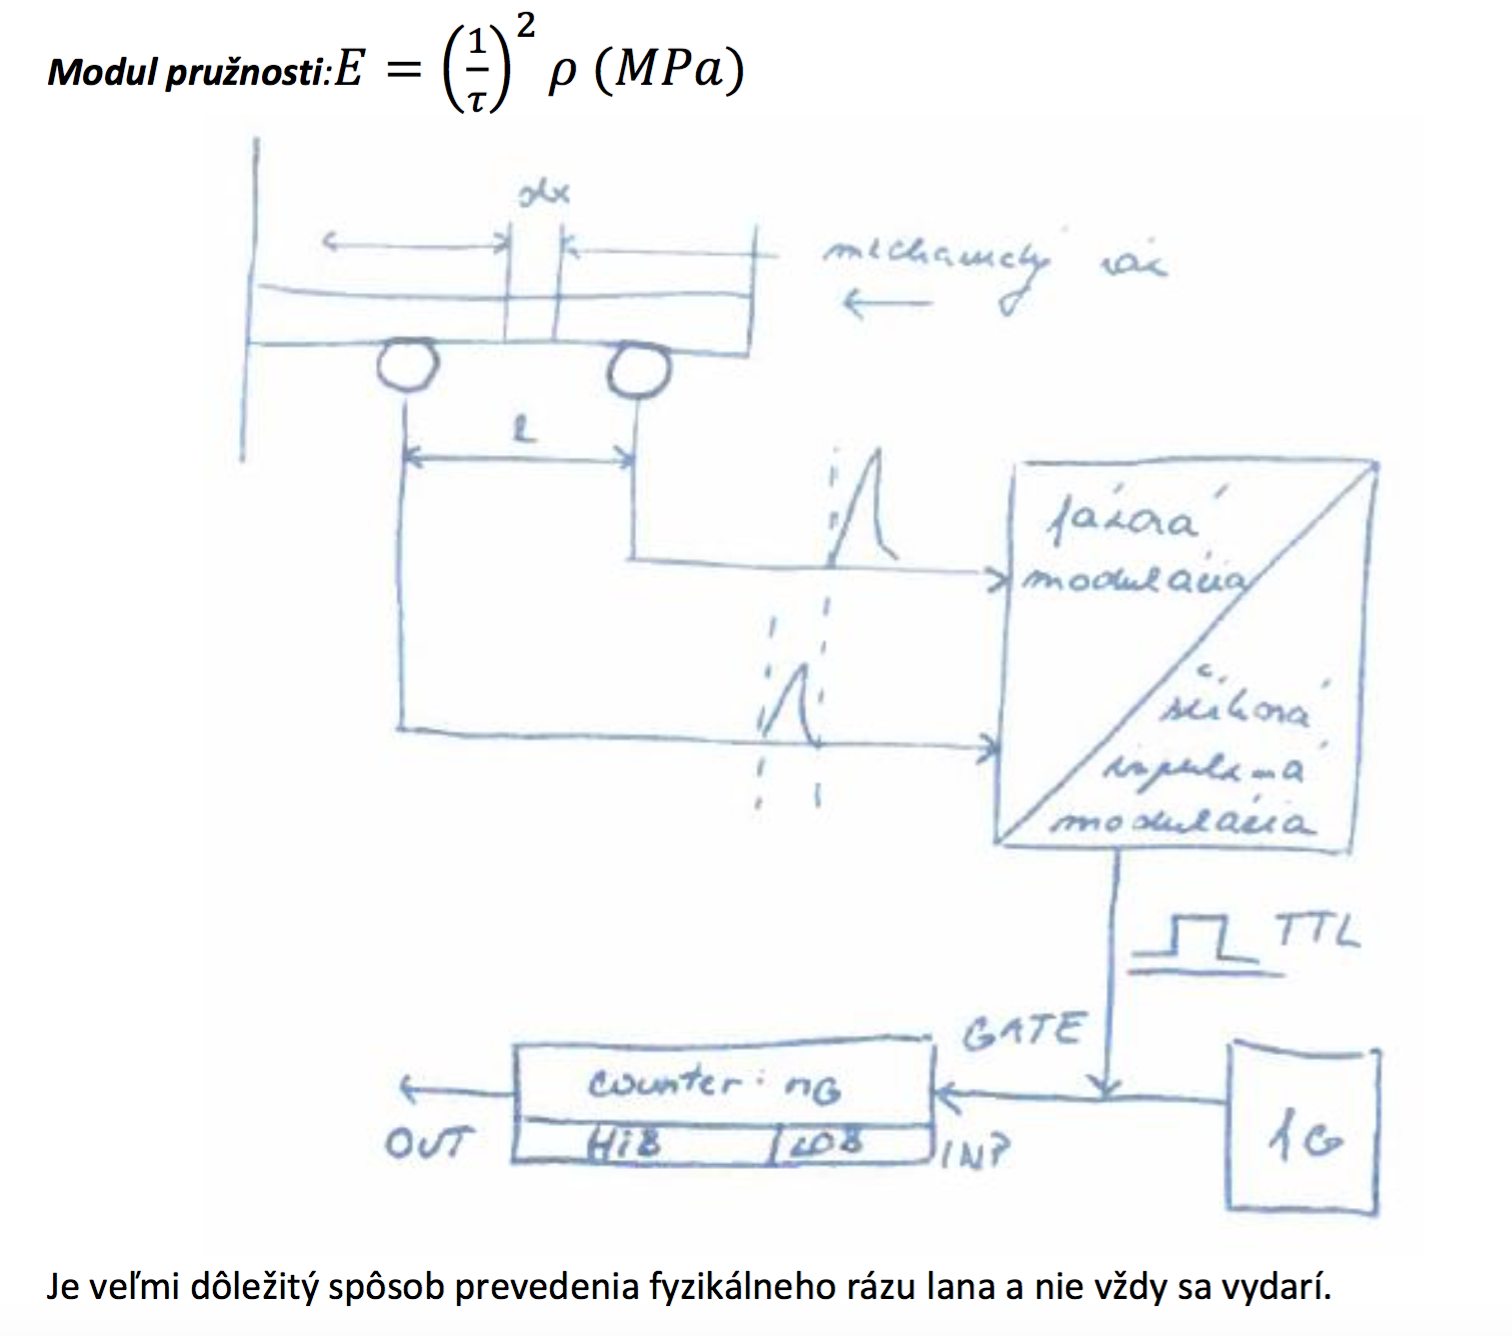 Modul pružnosti: E = (1/τ)² ρ (MPa)
dx
mechanický ráz
l
fázová
modulácia
šírková
impulzná
modulácia
TTL
GATE
counter: nG
HiB LOB
OUT
INP
fG
Je veľmi dôležitý spôsob prevedenia fyzikálneho rázu lana a nie vždy sa vydarí.